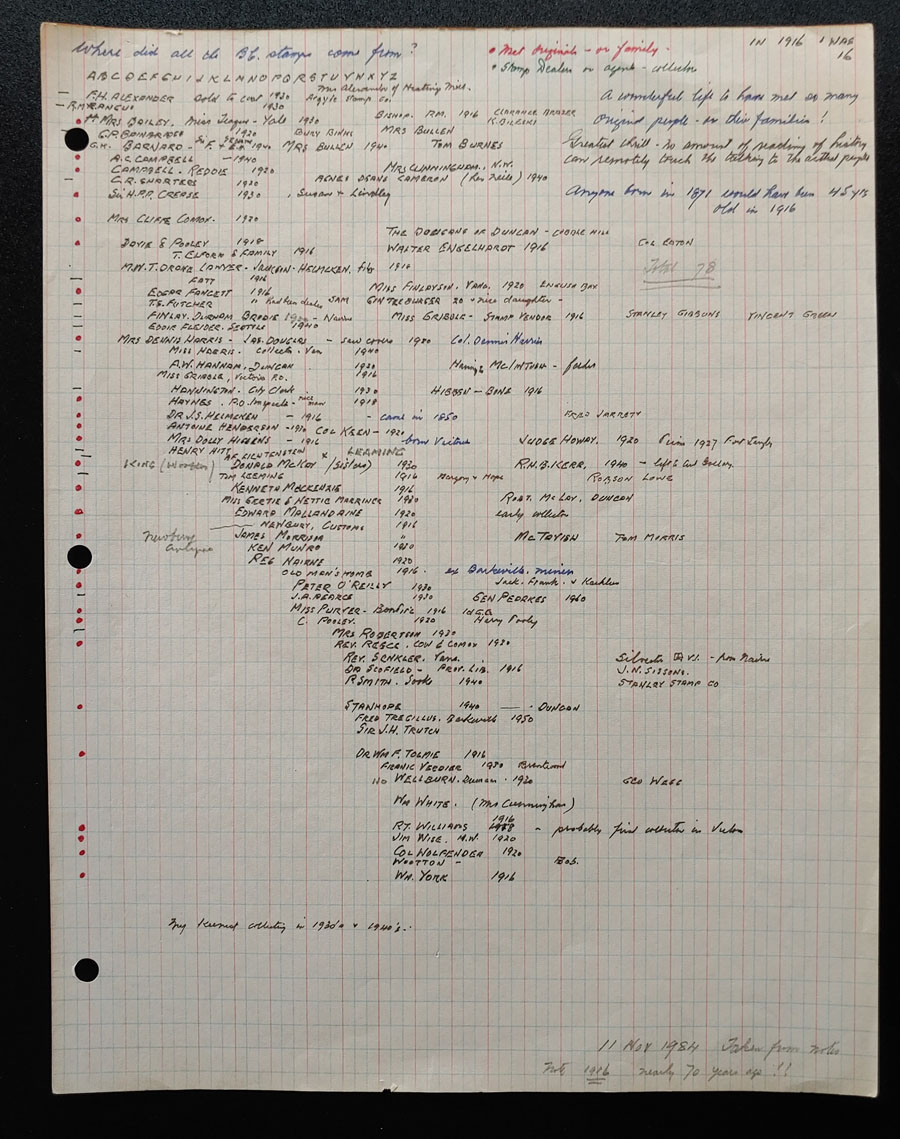 Where did all the BC. stamps come from?
• Met originals - or family.
IN 1916 I WAS
16
• Stamp Dealers or agent - collector
ABCDEFGHIJKLMNOPQRSTUVWXYZ
Mrs Alexander of Keating
F.H. ALEXANDER sold to coal 1930 Argyle Stamp Co.
1930
A wonderful life to have met so many
original people - or their families!
MRS BAILEY. Miss Teague - Yale 1930
BISHOP. P.M. 1916
BURY BINNS
MRS BULLEN
G.H. BARNARD - 1940 MRS BULLEN 1940 TOM BURNES
Greatest thrill - no amount of reading of history
can remotely touch the talking to the actual people
A.C. CAMPBELL - 1940
CAMPBELL. REDDIE 1920
MRS CUNNINGHAM, N.W.
AGNES DEANS CAMERON 1940
1930
Sir H.P.P. CREASE 1930 , Susan & Lindley
Anyone born in 1871 would have been 45 yrs
old in 1916
MRS CLIFFE COMOX. 1920
THE DOUGANS OF DUNCAN - COBBLE HILL
DAVIE & POOLEY 1918
WALTER ENGELHARDT 1916
COL EATON
T. ELFORD & FAMILY 1916
M.W.T. DRAKE LAWYER - JACKSON - HELMCKEN, 1916
Total 78
1916
MISS FINLAYSON, 1920 ENGLISH BAY
EDGAR FAWCETT 1916
T.S. FUTCHER " SAM GINTZBURGER 20 & nice daughter -
FINLAY. DURHAM BRODIE - Nairne
MISS GRIBBLE - STAMP VENDOR 1916
STANLEY GIBBONS VINCENT GREEN
EDDIE FLEIDER. SEATTLE 1940
MRS DENNIS HARRIS - JAS. DOUGLAS - saw covers 1920 Col. Dennis Harris
MISS HARRIS. Collector. Van 1940
A.W. HANNAM. DUNCAN 1920
McINTOSH -
MISS GRIBBLE, Victoria P.O. 1916
HANNINGTON. City Clerk. 1930
HIBBEN - BONE 1916
HAYNES. P.O. Inspector - nice man 1918
DR J.S. HELMCKEN - 1916 - came in 1850
FRED JARRETT
ANTOINE HENDERSON - 1920 COL KEEN - 1920
MRS DOLLY HIGGENS - 1916 born Victoria
JUDGE HOWAY. 1920 1927 Fort Langley
HENRY HITT AF. LICHTENSTEIN & LEEMING
KING (Wootten) DONALD McKAY (sisters) 1930
R.H.B. KERR, 1940
TOM LEEMING 1916
ROBSON LOWE
KENNETH McKENZIE 1916
MISS GERTIE & NETTIE MARRINER 1920
ROBT. McLAY, DUNCAN
EDWARD MALLANDAINE 1920 early collector
NEWBURY, CUSTOMS 1916
Newbury
antiques
JAMES MORRISON "
McTAVISH TOM MORRIS
KEN MUNRO 1920
REG NAIRNE 1920
OLD MEN'S HOME 1916. ex Barkerville. miners
PETER O'REILLY 1930 Jack. Frank. & Kathleen
J.A. PEARCE 1930 GEN PEARKES 1960
MISS PURVER - Bonfire 1916
C. POOLEY. 1920 Harry Pooley
MRS ROBERTSON 1920
REV. REECE. COW & COMOX 1920
REV. SCHKLER.
Silvester - from Nairne
DR SCOFIELD - PROV. LIB. 1916
J.N. SISSONS.
P. SMITH. Sooke 1940
STANLEY STAMP CO
STANHOPE 1940 — DUNCAN
FRED TREGILLUS. Barkerville 1950
SIR J.H. TRUTCH
DR WM F. TOLMIE 1916
FRANK VERDIER 1920 Brentwood
WELLBURN. Duncan. 1920
GEO WEBB
WM WHITE. (Mrs Cunningham)
1916
R.T. WILLIAMS - probably first collector in Victoria
JIM WISE. N.W. 1920
COL WOLFENDEN 1920
WOOTTON - Bob.
WM. YORK 1916
Really collecting in 1930's & 1940's.
11 Nov 1984 Taken from notes
Note 1916 nearly 70 years ago!!